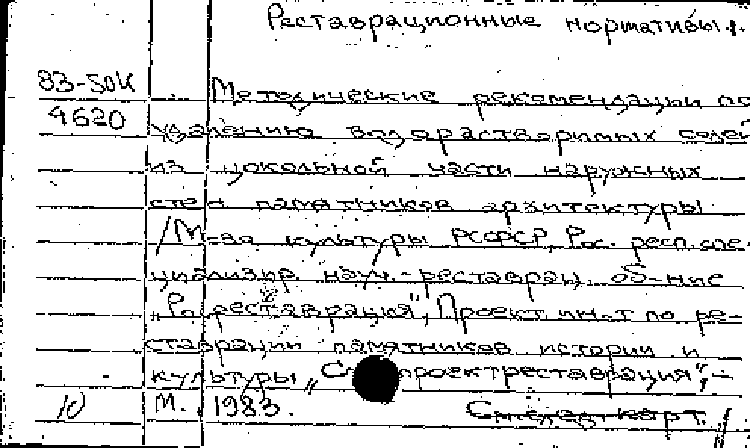 Реставрационные нормативы.
83-50к
Методические рекомендации по
4620
удалению водорастворимых солей
из цокольной части наружных
стен памятников архитектуры
/М-во культуры РСФСР, Рос. респ. спе-
циализир. науч.-реставрац. об-ние
„Росреставрация", Проект. ин-т по ре-
ставрации памятников истории и
культуры „Спецпроектреставрация",-
10 М. 1983.
След. карт.